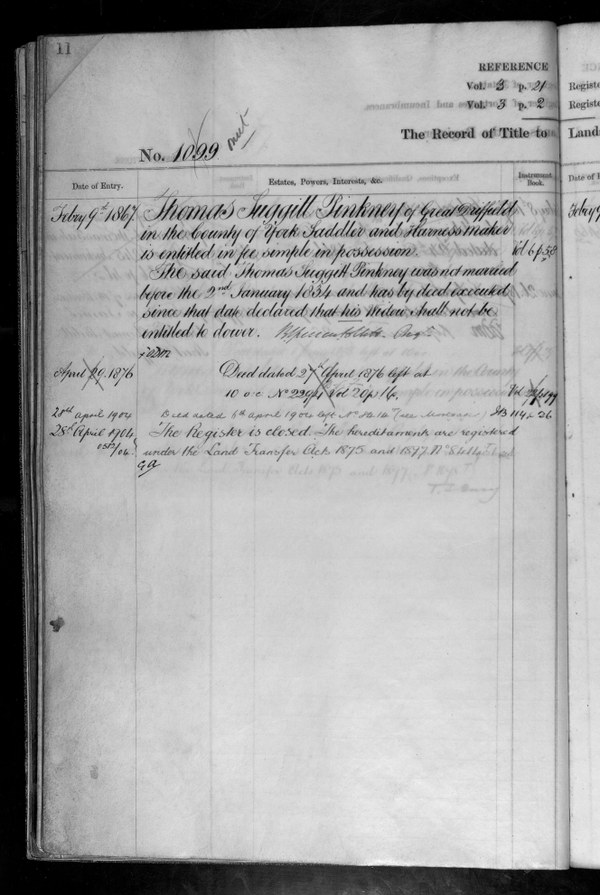 11
REFERENCE
Vol. 3 p. 21
Vol. 3 p. 2
The Record of Title to Land
No. 1099
Date of Entry.
Estates, Powers, Interests, &c.
Instrument Book.
Febry 9th 1867
Thomas Suggitt Pinkney of Great Driffield
in the County of York Saddler and Harness maker
is entitled in fee simple in possession.
Vol 6 p 53
The said Thomas Suggitt Pinkney was not married
before the 2nd January 1834 and has by deed executed
since that date declared that his Widow shall not be
entitled to dower.
April 29. 1876
Deed dated 27th April 1876 left at
10 o'c No 2291 Vol 20 p 16.
28th april 1904
Deed dated 6th april 1904 left
114 p 26
28th April 1904
The Register is closed. The hereditaments are registered
under the Land Transfer Acts 1875 and 1897